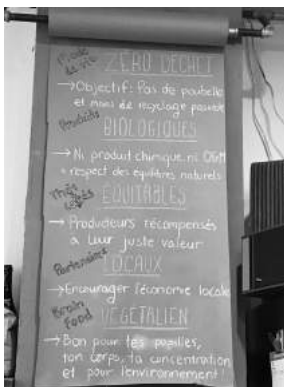 Mode de vie
ZÉRO DÉCHET
→ Objectif: Pas de poubelle
et moins de recyclage possible
Produits
BIOLOGIQUES
→ Ni produit chimique, ni OGM
+ respect des équilibres naturels
Thés
Cafés
ÉQUITABLES
→ Producteurs récompensés
à leur juste valeur
Partenaires
LOCAUX
→ Encourager l'économie locale
Brain
Food
VÉGÉTALIEN
→ Bon pour tes papilles,
ton corps, ta concentration
et pour l'environnement!